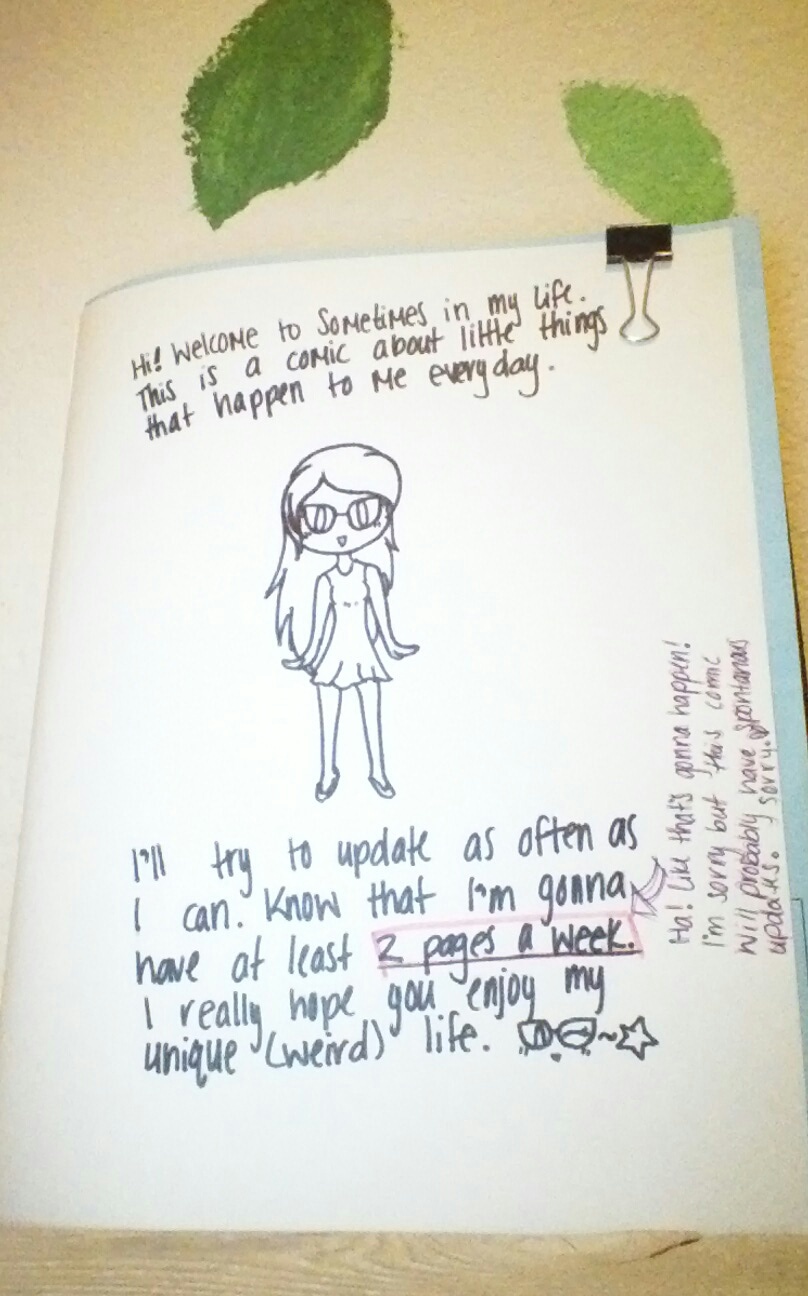 Hi! Welcome to Sometimes in my life.
This is a comic about little things
that happen to me everyday.
I'll try to update as often as
I can. Know that I'm gonna
have at least 2 pages a week.
I really hope you enjoy my
unique (weird) life.
Ha! Like that's gonna happen!
I'm sorry but this comic
will probably have spontanous
updates. Sorry.